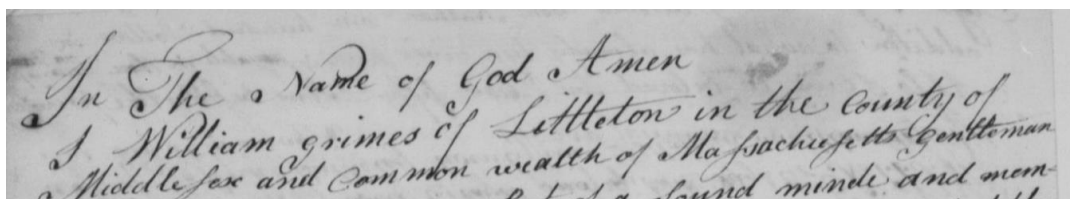 In The Name of God Amen
I William grimes of Littleton in the County of
Middlesex and Common wealth of Massachusetts Gentleman
of a sound minde and mem-